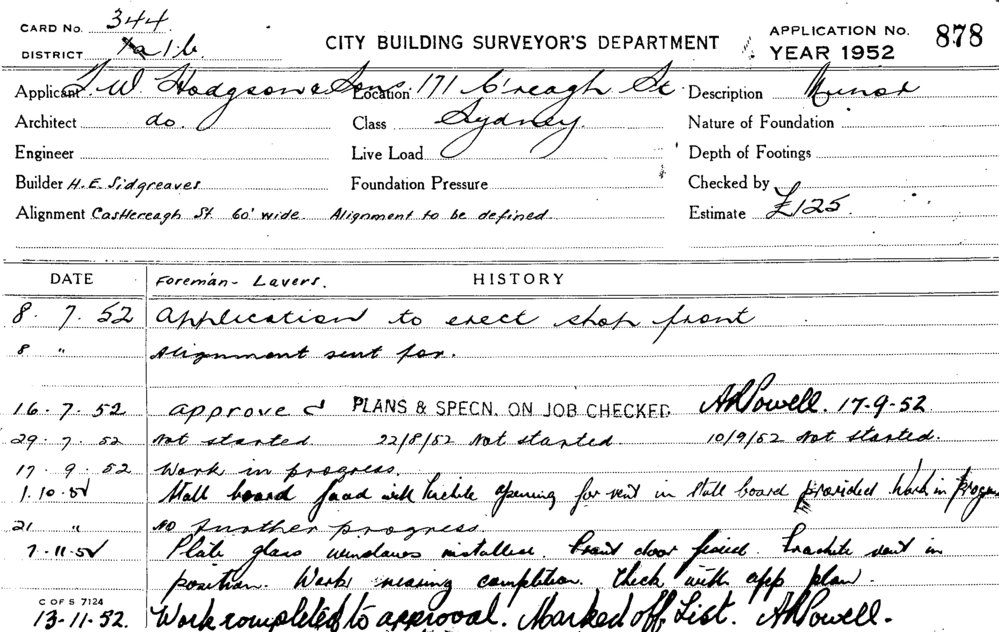 CARD No. 344
DISTRICT 1b
CITY BUILDING SURVEYOR'S DEPARTMENT
APPLICATION No. 878
YEAR 1952
Applicant W Hodgson & Sons Location 171 C'reagh St Description Minor
Architect do. Class Sydney. Nature of Foundation
Engineer Live Load Depth of Footings
Builder H.E. Sidgreaves Foundation Pressure Checked by
Alignment Castlereagh St. 60' wide Alignment to be defined Estimate £125.
DATE Foreman - Lavers. HISTORY
8. 7. 52 Application to erect shop front
8 " Alignment sent for.
16. 7. 52 approved PLANS & SPECN. ON JOB CHECKED AR Powell. 17-9-52
29. 7. 52 Not started. 22/8/52 Not started. 10/9/52 Not started.
17. 9. 52 Work in progress.
1. 10. 52 Stall board faced with opening for vent in stall board provided Work in progress
21 " No further progress
7-11-52 Plate glass windows installed. Front door fixed. vent in
position. Work nearing completion. Check with app plan.
C OF S 7124
13-11-52. Work completed to approval. Marked off List. AR Powell.